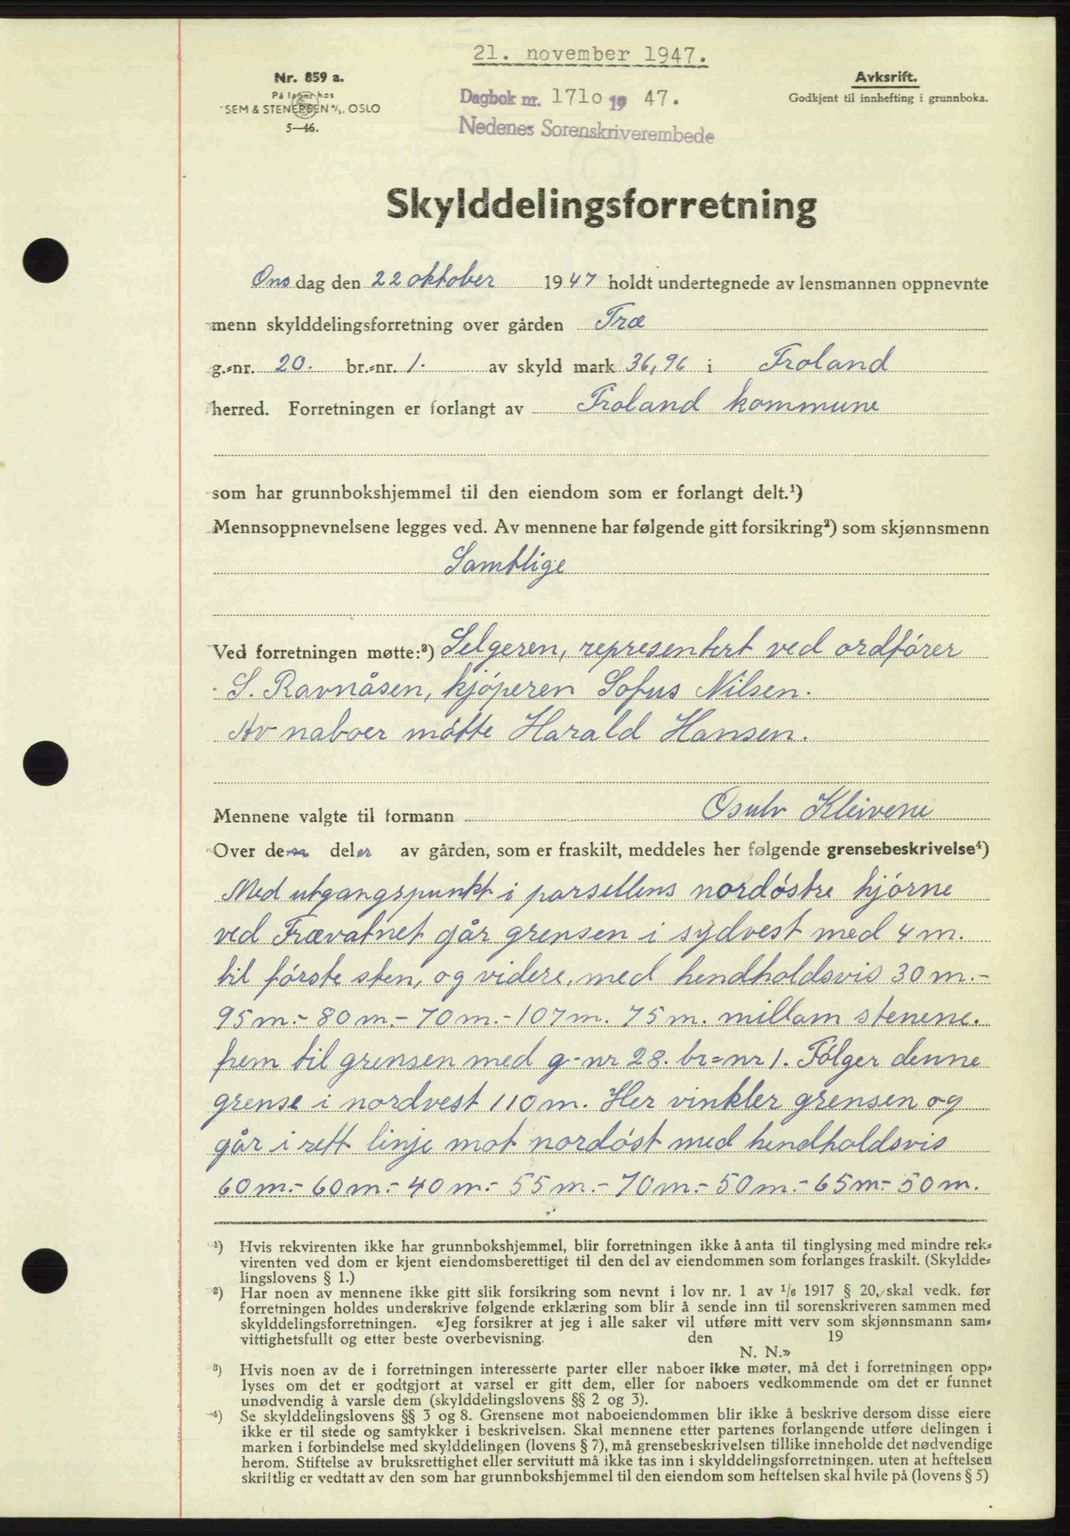 21. november 1947.
Nr. 859 a.
På lager hos
SEM & STENERSEN A/S, OSLO
5—46.
Dagbok nr. 1710 19 47.
Nedenes Sorenskriverembede
Avskrift.
Godkjent til innhefting i grunnboka.
Skylddelingsforretning
Onsdag den 22 oktober 1947 holdt undertegnede av lensmannen oppnevnte
menn skylddelingsforretning over gården Træ
g.-nr. 20. br.-nr. 1. av skyld mark 36,96 i Froland
herred. Forretningen er forlangt av Froland kommune
som har grunnbokshjemmel til den eiendom som er forlangt delt.¹)
Mennsoppnevnelsene legges ved. Av mennene har følgende gitt forsikring²) som skjønnsmenn
Samtlige
Ved forretningen møtte:³) Selgeren, representert ved ordfører
S. Ravnåsen, kjøperen Sofus Nilsen.
Av naboer møtte Harald Hansen.
Mennene valgte til formann Osulv Kleivene
Over de deler av gården, som er fraskilt, meddeles her følgende grensebeskrivelse⁴)
Med utgangspunkt i parsellens nordøstre hjørne
ved Trævatnet går grensen i sydvest med 4 m.
til første sten, og videre, med hendholdsvis 30 m.-
95 m.- 80 m.- 70 m.- 107 m. 75 m. millom stenene.
frem til grensen med g-nr 28. br=nr 1. Følger denne
grense i nordvest 110 m. Her vinkler grensen og
går i rett linje mot nordøst med hendholdsvis
60 m.- 60 m.- 40 m.- 55 m.- 70 m.- 50 m.- 65 m- 50 m.
¹) Hvis rekvirenten ikke har grunnbokshjemmel, blir forretningen ikke å anta til tinglysing med mindre rek-
virenten ved dom er kjent eiendomsberettiget til den del av eiendommen som forlanges fraskilt. (Skyldde-
lingslovens § 1.)
²) Har noen av mennene ikke gitt slik forsikring som nevnt i lov nr. 1 av 1/6 1917 § 20, skal vedk. før
forretningen holdes underskrive følgende erklæring som blir å sende inn til sorenskriveren sammen med
skylddelingsforretningen. «Jeg forsikrer at jeg i alle saker vil utføre mitt verv som skjønnsmann sam-
vittighetsfullt og etter beste overbevisning. den 19
N. N.»
³) Hvis noen av de i forretningen interesserte parter eller naboer ikke møter, må det i forretningen opp-
lyses om det er godtgjort at varsel er gitt dem, eller for naboers vedkommende om det er funnet
unødvendig å varsle dem (skylddelingslovens §§ 2 og 3).
⁴) Se skylddelingslovens §§ 3 og 8. Grensene mot naboeiendommen blir ikke å beskrive dersom disse eiere
ikke er til stede og samtykker i beskrivelsen. Skal mennene etter partenes forlangende utføre delingen i
marken i forbindelse med skylddelingen (lovens § 7), må grensebeskrivelsen tillike inneholde det nødvendige
herom. Stiftelse av bruksrettighet eller servitutt må ikke tas inn i skylddelingsforretningen, uten at heftelsen
skriftlig er vedtatt av den som har grunnbokshjemmel til den eiendom som heftelsen skal hvile på (lovens § 5)